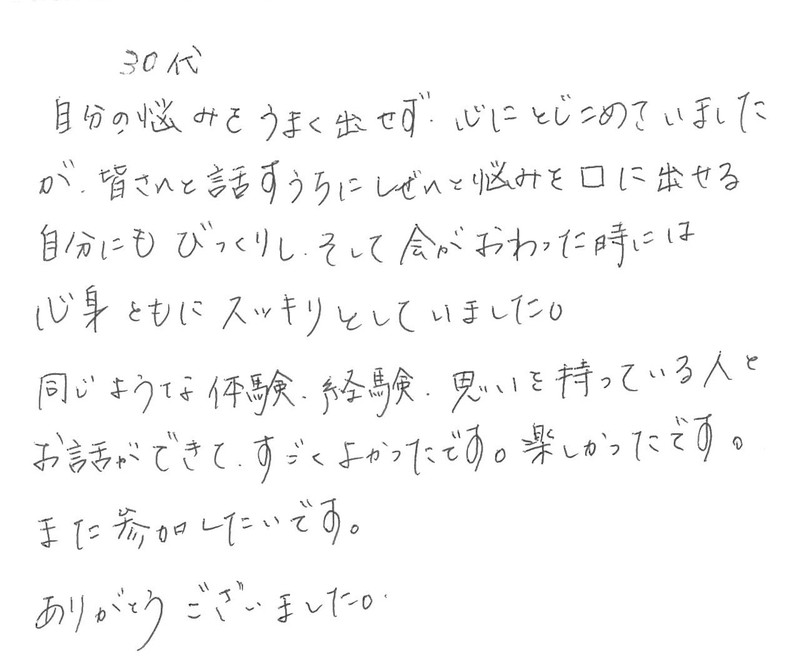 30代
自分の悩みをうまく出せず、心にとじこめていました
が、皆さんと話すうちにしぜんと悩みを口に出せる
自分にもびっくりし、そして会がおわった時には
心身ともにスッキリとしていました。
同じような体験、経験、思いを持っている人と
お話ができて、すごくよかったです。楽しかったです。
また参加したいです。
ありがとうございました。